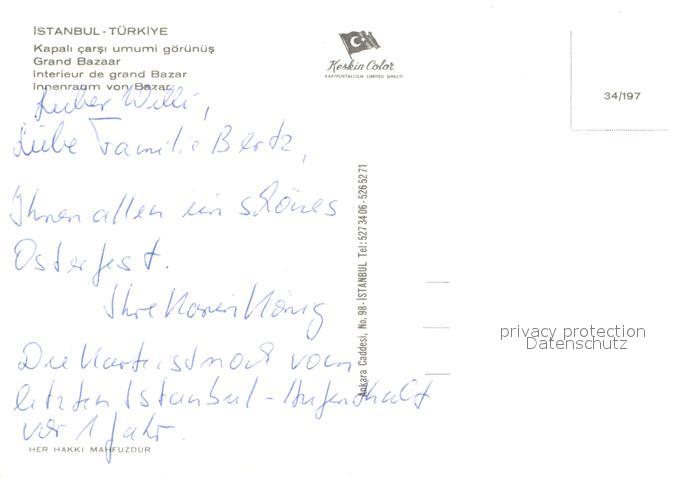 İSTANBUL-TÜRKİYE
Kapalı çarşı umumi görünüş
Grand Bazaar
Interieur de grand Bazar
Innenraum von Bazar
Keskin Color
KARTPOSTALCILIK LIMITED ŞİRKETİ
34/197
Lieber Willi,
Liebe Familie Bertz,
Ihnen allen ein schönes
Osterfest.
Ihre Karin König
Die Karte ist noch vom
letzten Istanbul-Aufenthalt
vor 1 Jahr.
HER HAKKI MAHFUZDUR
Ankara Caddesi, No. 98-İSTANBUL Tel: 5273406-5265271
privacy protection
Datenschutz